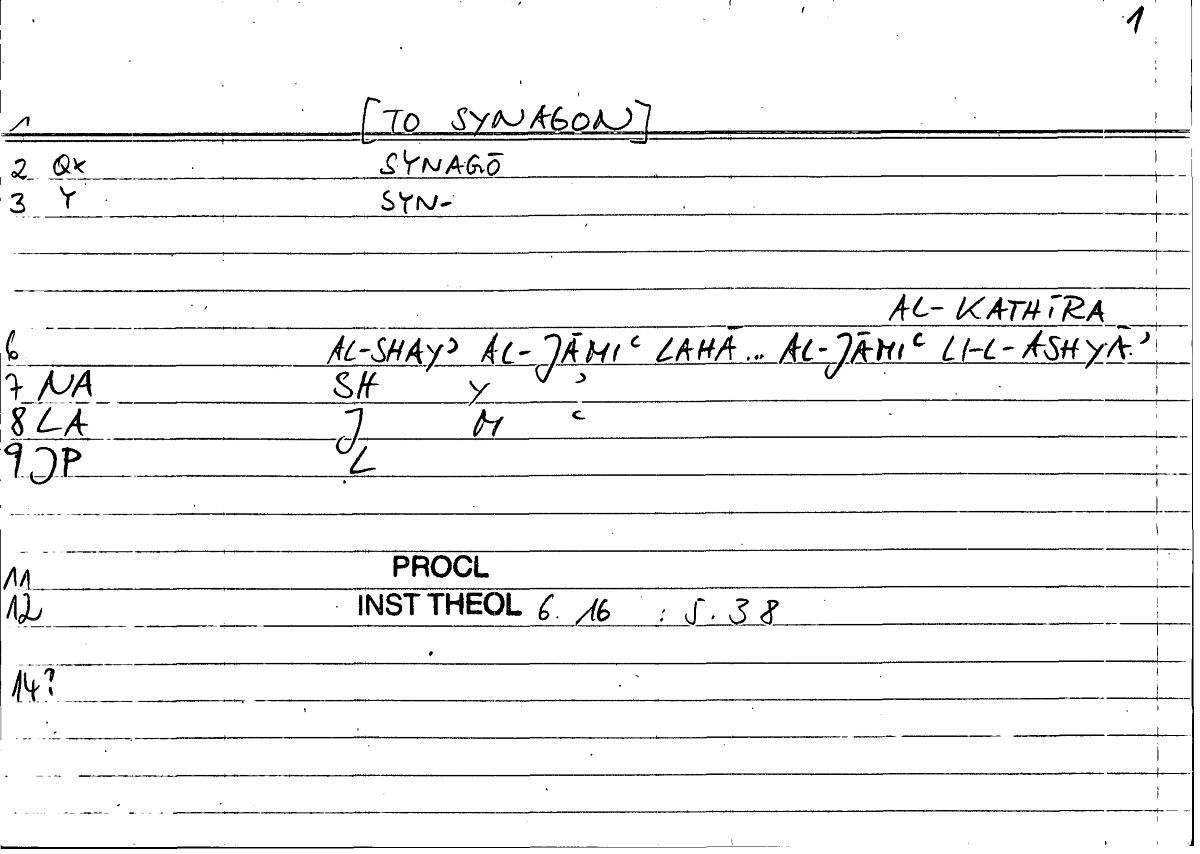 1
1 [TO SYNAGON]
2 Qx SYNAGŌ
3 Y SYN-
AL-KATHĪRA
6 AL-SHAYʾ AL-JĀMIʿ LAHĀ... AL-JĀMIʿ LI-L-ASHYĀʾ
7 NA SH Y ʾ
8 LA J M ʿ
9 JP L
11 PROCL
12 INST THEOL 6. 16 : 5. 38
14?